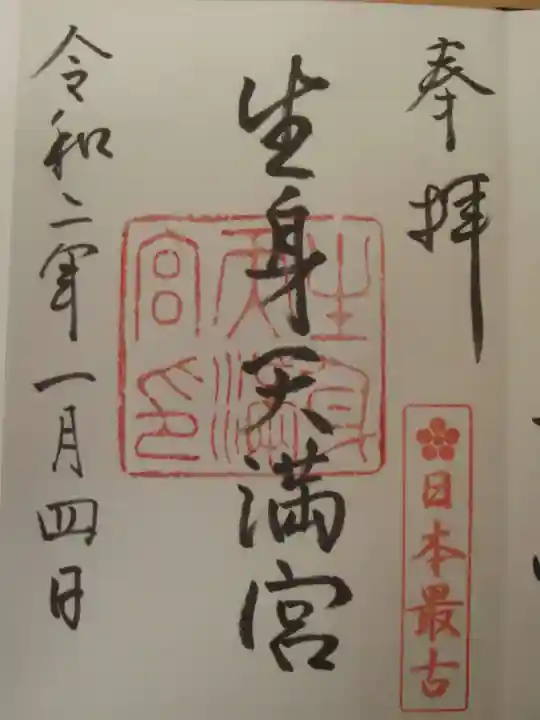 奉拝
日本最古
生身天満宮
生身天満宮印
令和二年一月四日